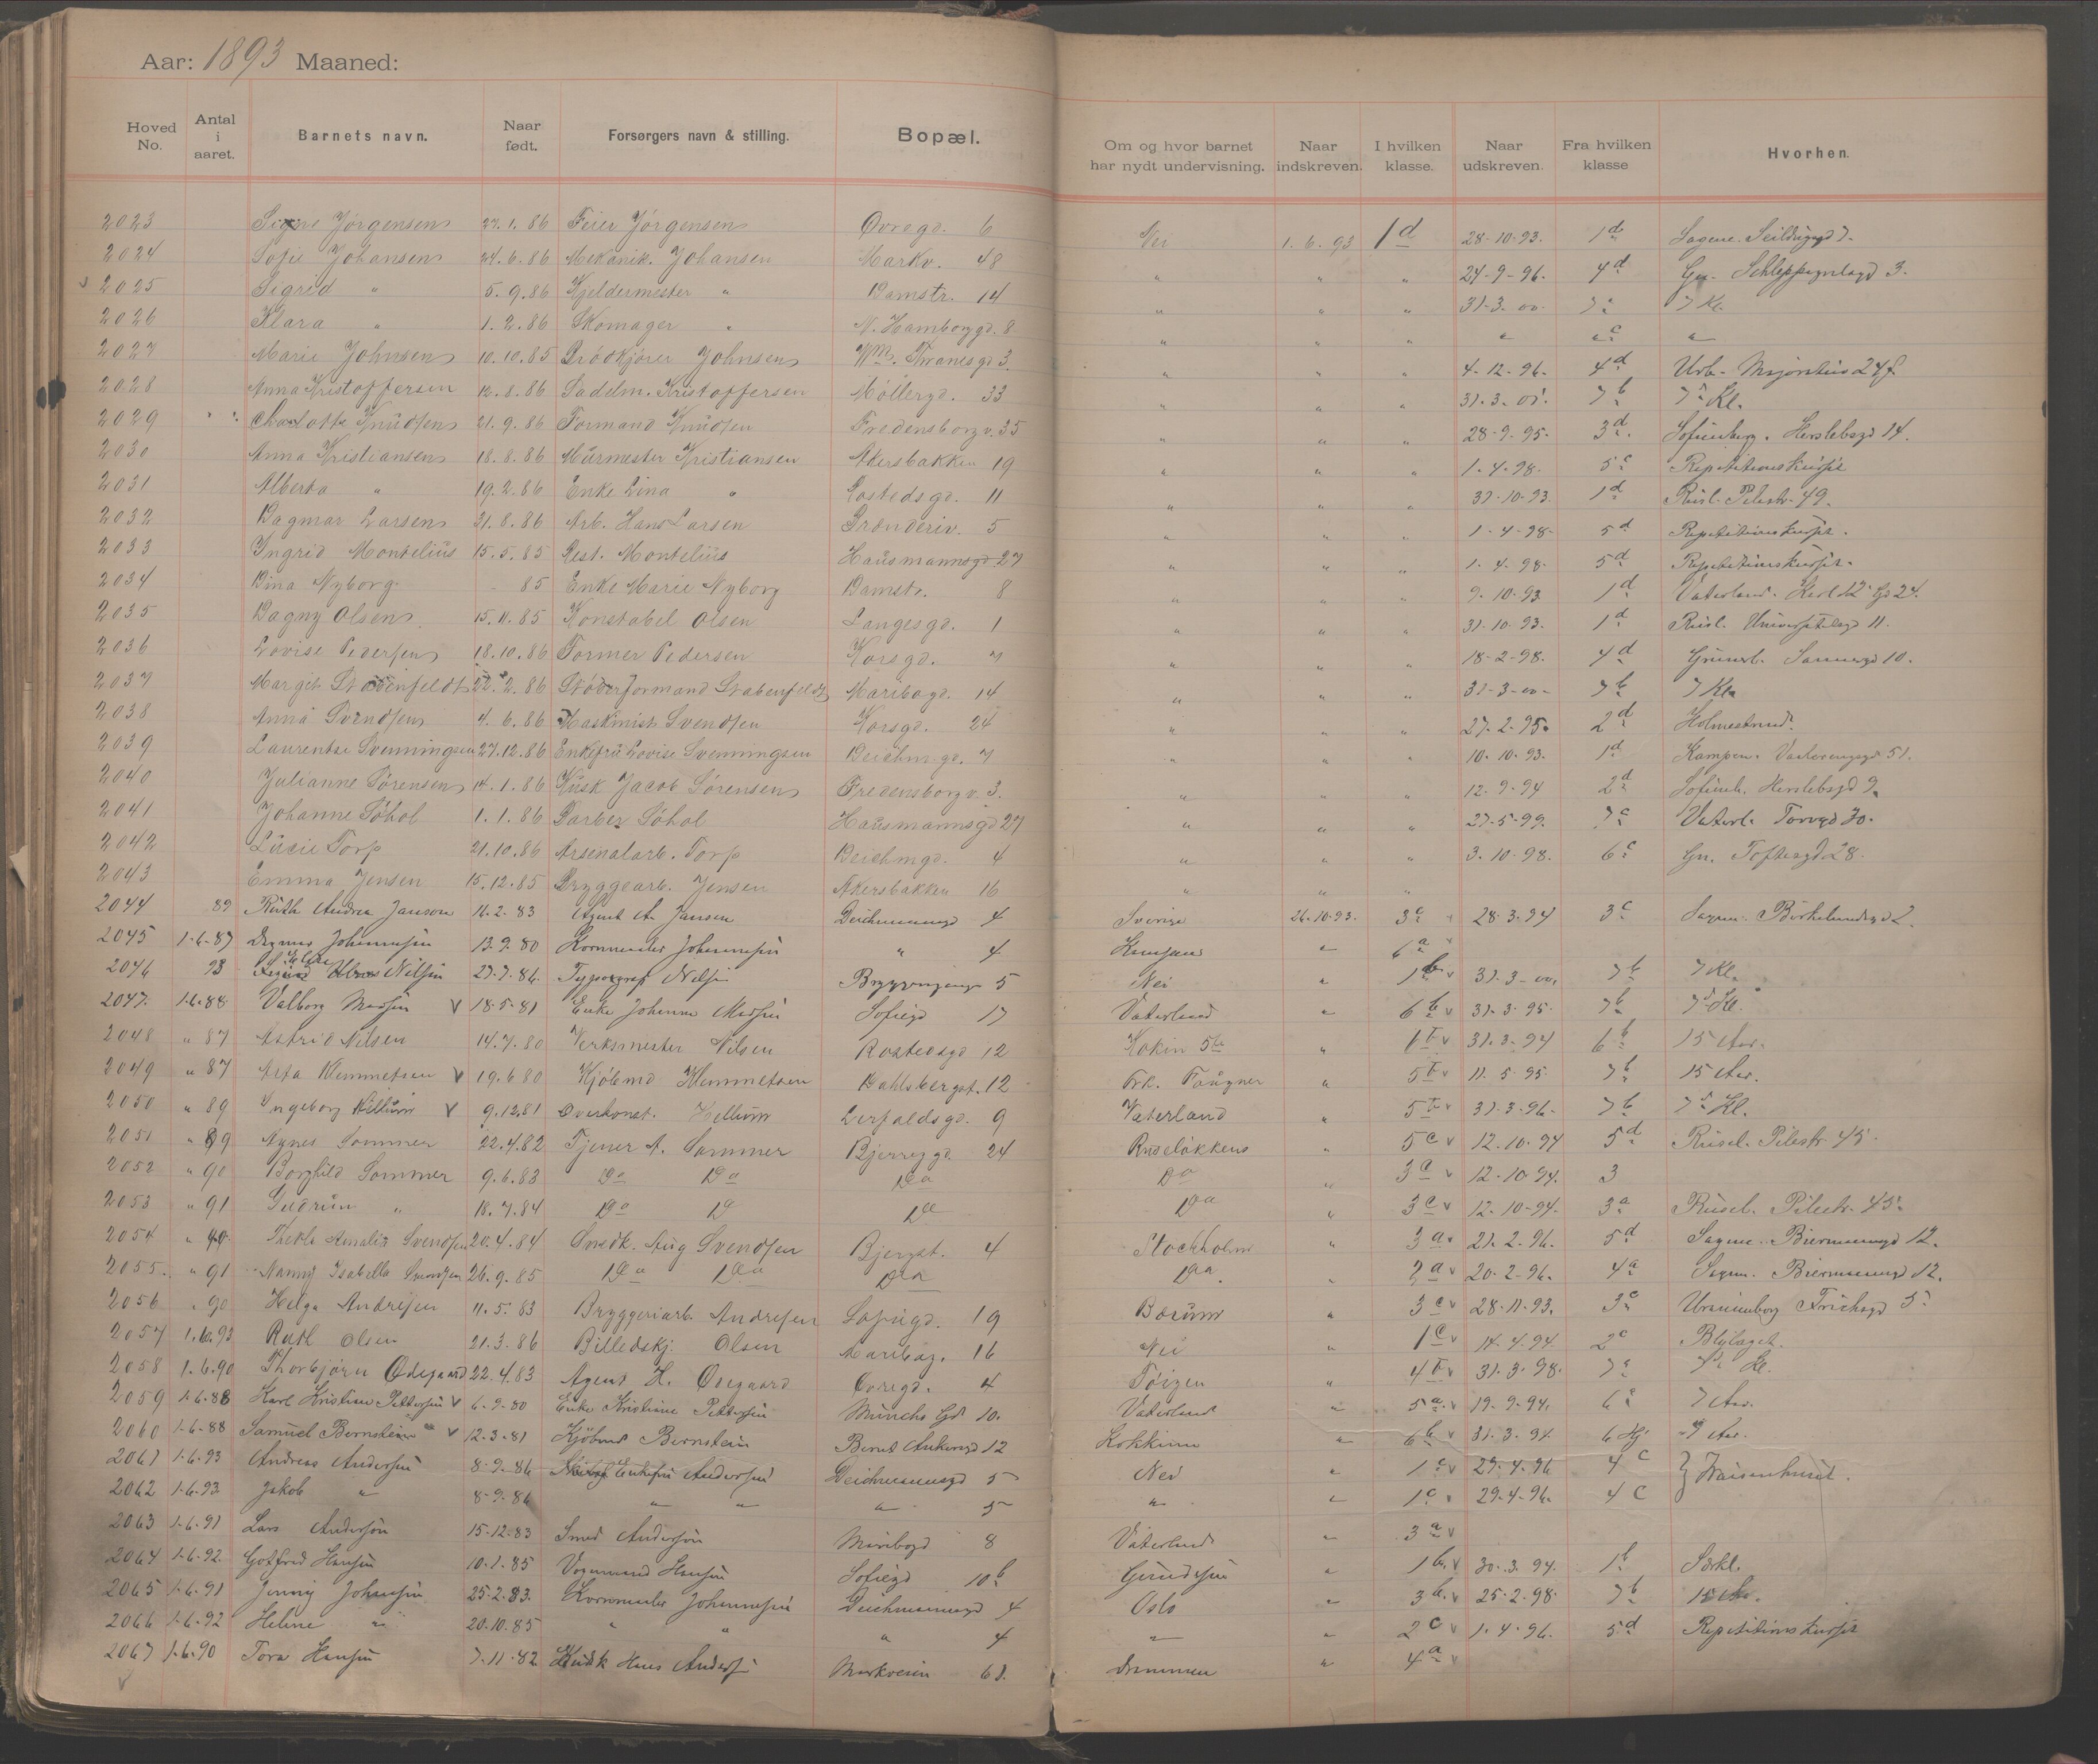 Aar: 1893 Maaned:
Hoved No. Antal i aaret. Barnets navn. Naar født. Forsørgers navn & stilling. Bopæl. Om og hvor barnet har nydt undervisning. Naar indskreven. I hvilken klasse. Naar udskreven. Fra hvilken klasse Hvorhen.
2023 Signe Jørgensen 27.1.86 Feier Jørgensen Øvregd. 6 Nei 1.6.93 1d 28-10-93. 1d Sagene.
2024 Sofie Johansen 24.6.86 Mekanik. Johansen Markv. 48 " " " 24-9-96. 4d 3.
2025 Sigrid " 5.9.86 Kjeldermester " Damstr. 14 " " " 31-3.00. 7 Kl.
2026 Klara " 1.2.86 Skomager " N. Hamborggd. 8 " " " " " "
2027 Marie Johnsen 10.10.85 Brødkjører Johnsen Wm. Thranesgd 3. " " " 4-12-96. 4d
2028 Anna Kristoffersen 12.8.86 Sadelm. Kristoffersen Møllergd. 33 " " " 31.3.01. 7b 7d Kl.
2029 Charlotte Knudsen 21.9.86 Formand Knudsen Fredensborgv. 35 " " " 28-9-95. 3d. Sofienberg. Herslebsgd 14.
2030 Anna Kristiansen 18.8.86 Murmester Kristiansen Akersbakken 19 " " " 1-4-98. 5c Repetitionskursit
2031 Alberta " 19.2.86 Enke Lina " Rostedsgd. 11 " " 31-10-93. 1d Rusl. Pilestr. 49.
2032 Dagmar Larsen 31.8.86 Arb. Hans Larsen Brænderiv. 5 " " " 1-4-98. 5d Repetitionskursit.
2033 Ingrid Montelius 15.5.85 Rest. Montelius Hausmannsgd. 27 " " " 1.4.98. 5d Repetitionskursit.
2034 Dina Nyborg - 85 Enke Marie Nyborg Damstr. 8 " " " 9-10-93. 1d Vaterland. Karl 12 Gd 24.
2035 Dagny Olsen 15.11.85 Konstabel Olsen Langesgd. 1 " " " 31-10-93. 1d Rusl. Universitetsgd 11.
2036 Lovise Pedersen 18.10.86 Former Pedersen Korsgd. 7 " " " 18-2-98. 4d Grünerl. 10.
2037 Margit Stobenfeldt 22.2.86 Støberformand Stabenfeldt Maribogd. 14 " " " 31-3-00- 7b 7 Kl.
2038 Anna Svendsen 4.6.86 Maskinist Svendsen Korsgd. 24 " " " 27-2-95. 2d Holmestrand.
2039 Laurentse Svenningsen 27.12.86 Enkefru Lovise Svenningsen Deichm.gd. 7 " " " 10-10-93. 1d Kampen. 51.
2040 Julianne Sørensen 14.1.86 Kusk Jacob Sørensen Fredensborgv. 3. " " " 12-9-94 2d Sofienb. Herslebsgd 9.
2041 Johanne Søhol 1.1.86 Barber Søhol Hausmannsgd 27 " " " 27-5-99. 7c Vaterl. Torvgd 30.
2042 Lucie Torp 21.10.86 Arsenalarb. Torp Deichmgd. 4 " " " 3.10-98. 6c Gn. Toftesgd 28.
2043 Emma Jensen 15.12.85 Bryggearb. Jensen Akersbakken 16 " " "
2044 89 Ruth Andrea Janson 16.2.83 Agent A. Jansen Deichmannsgd 4 Sverige 26.10.93. 3c 28.3.94 3c Sagene. Birkelundsgd 2.
2045 1-6-87 Johannesen 13.9.80 Kornmaaler Johannesen " 4 " 6a
2046 93 Nilsen 27.7.86. Typograf Nilsen 5 Nei " 1b v 31-3-00. 7b 7 Kl.
2047. 1-6-88 Valborg Madsen v 18-5-81 Enke Johanne Madsen Sofiegd 17 Vaterland " 6b v 31-3-95. 7b 7d Kl.
2048 " 87 Astrid Nilsen 14.7.80 Verksmester Nilsen Rostedsgd 12 " v 31-3-94 6b 15 Aar.
2049 " 87 Asta Klemmetsen v 19.6.80 Kjøbmd Klemmetsen Dahlsbergst. 12 Frk. Faugner " 5b v 11.5.95. 7b 15 Aar.
2050 " 89 Ingeborg Kellum v 9.12.81 Overkonst. Kellum 9 Vaterland " 5b v 31-3-96- 7b 7d Kl.
2051 " 89 Agnes Sommer 22.4.82 Tjener A. Sommer Bjerregd. 24 Ruseløkken " 5c v 12-10-94 5d Rusel. Pilestr 45.
2052 " 90 Borghild Sommer 9.6.83 Do Do Do Do " 3c v 12-10-94. 3
2053 " 91 Gudrun " 18.7.84 Do Do Do Do " 3c v 12-10-94. 3a Rusel. Pilestr. 45.
2054 " 90 Thekla Amalia Svendsen 20.4.84 Snedk. Aug Svendsen Bjergst. 4 Stockholm " 3a v 21-2-96. 5d Sagene. Biermannsgd 12.
2055. " 91 Nanny Isabella Svendsen 26.9.85 Do Do Do Do. " 2a v 20-2-96. 4a Sagene. Biermannsgd 12.
2056 " 90 Helga Andresen 11.5.83 Bryggeriarb. Andresen Sofiegd. 19 Bærum " 3c v 28-11-93. 3c Uranienborg Frichsgd 5.
2057 1.6.93 Olsen 21.3.86 Billedskj. Olsen Maribog. 16 Nei " 1c v 14.4.94 2c
2058 1.6.90 Thorbjørn Ødegaard 22.4.83 Agent H. Ødegaard Øvregd. 4 Tøien " 4b v 31-3-98. 7 Kl.
2059 1-6-88 Karl Kristian Pettersen v 6-9-80 Enke Kristine Pettersen Munchs Gd 10. Vaterland " 5a v 19-9-94. 6 Aar.
2060 1-6-88 Samuel Bernstein v 12-3-81 Kjøbmd Bernstein Bernt Ankersgd 12 " 6b v 31-3-94. 6 Aar.
2061 1-6-93 Andreas Andersen 8-9-86 Enkefru Andersen Deichmannsgd 5 Nei " 1c v 29-4-96 4c } Waisenhuset.
2062 1-6-93. Jakob " 8-9-86 " " " 5 " " 1c v 29-4-96. 4c
2063 1-6-91 Lars Anderson 15-12-83 Smed Anderson Maribogd 8 Vaterland " 3a v
2064 1-6-92. Gotfred Hansen 10-1-85 Vognmand Hansen Sofiegd 10b " 1b. v 30.3.94. 1b Særkl.
2065 1-6-91 Jenny Johansen 25-2.83. Kornmaaler Johannesen Deichmannsgd 4 Oslo " 3b. v 25-2-98. 7b 15 Aar.
2066 1-6-92 Helene " 20-10-85 " " " 4 " " 2c v 1.4.96. 5d Repetitionskursit
2067 1-6-90 Tora Hansen 7-11-82 Kusk Hans Markveien 61. Drammen " 4a v
v